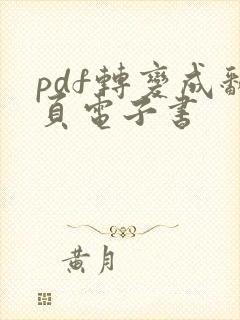 pdf轉變成翻
頁電子書
黄月